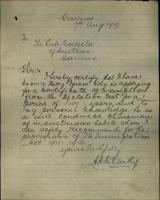 Cairns
7th Aug 1917
To
The Sub-Collector
of Customs
Cairns
Sir,
I hereby certify that I have
known
who is applying
for a certificate of exemption
from the Dictation Test for a
period of
years, and to
my personal knowledge he is
a well conducted
of industrious habits whom I
can safely recommend for the
provisions of the Immigration
Act 1901-1912.
Yours faithfully